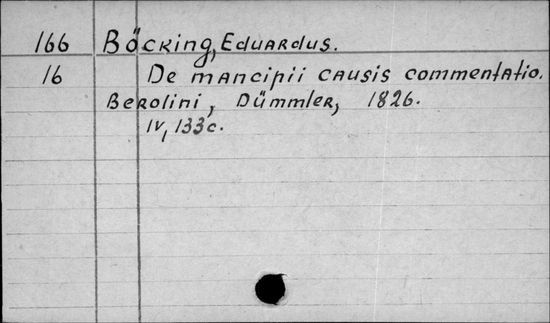 166 Böcking, Eduardus.
16 De mancipii causis commentatio.
Berolini, Dümmler, 1826.
IV, 133c.